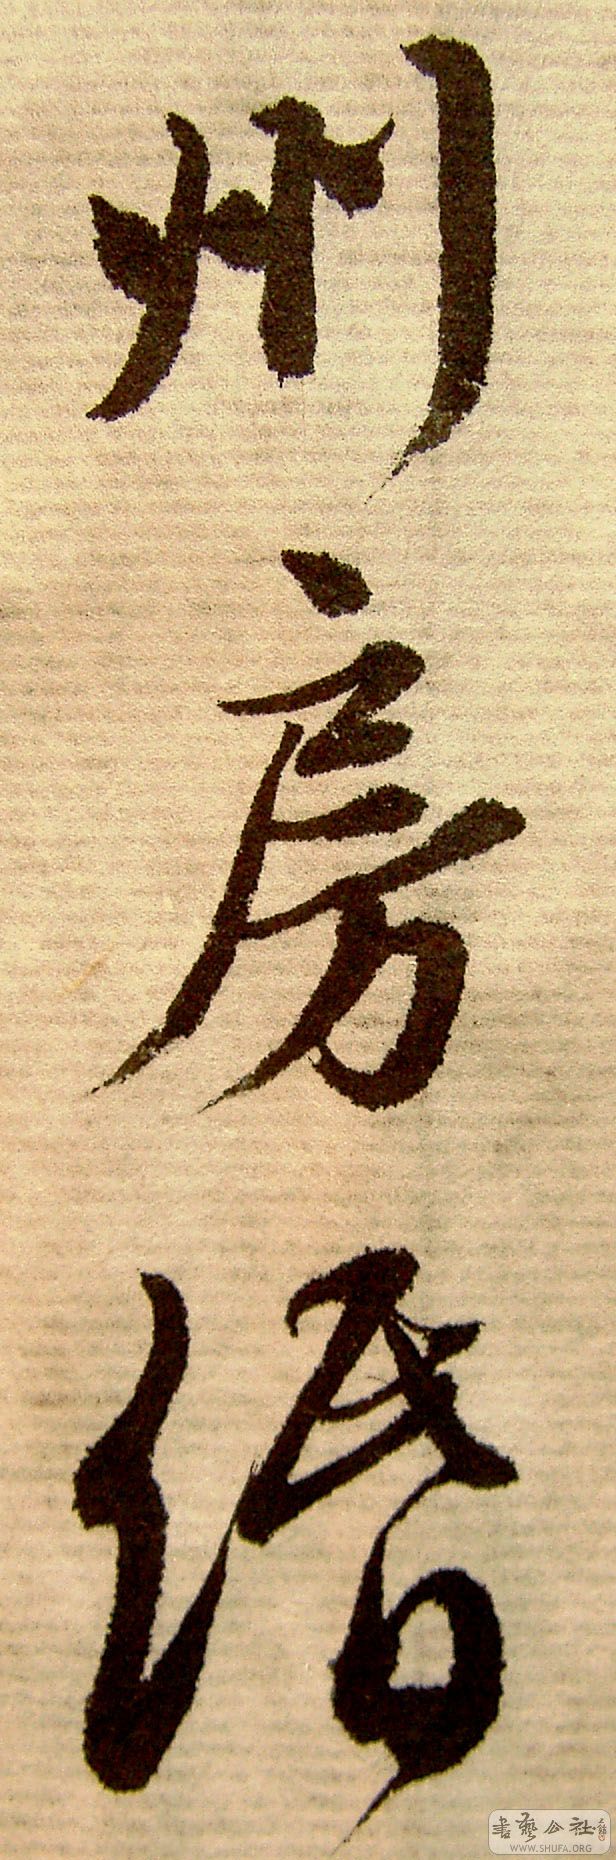 州房緡
書藝公社
WWW.SHUFA.ORG